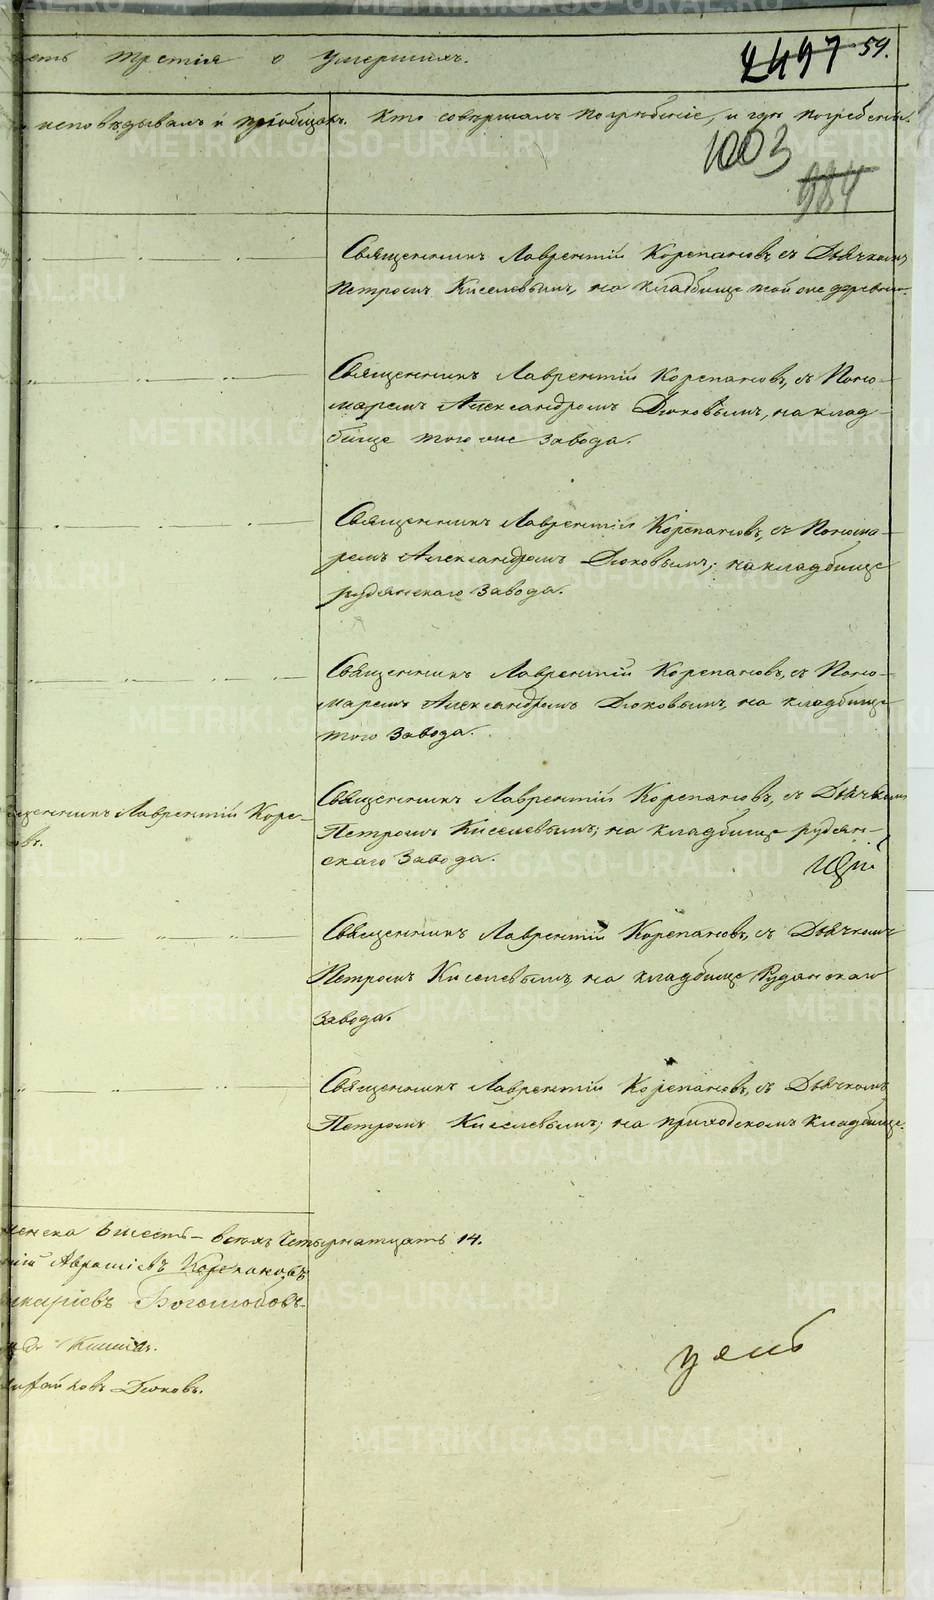 третія о умершихъ.
2497 59.
исповѣдывалъ и пріобщалъ. Кто совершалъ погребеніе, и гдѣ погребены.
1003
984
Священникъ Лаврентій Корепановъ, съ Дьячкомъ
Петромъ Киселевымъ, на кладбище той же деревни.
Священникъ Лаврентій Корепановъ, съ Поно-
маремъ Александромъ Дюковымъ, на клад-
бище того же завода.
Священникъ Лаврентій Корепановъ, съ Понома-
ремъ Александромъ Дюковымъ; на кладбище
рудянскаго завода.
Священникъ Лаврентій Корепановъ, съ Поно-
маремъ Александромъ Дюковымъ, на кладбище
того завода.
Лаврентій Коре-
въ.
Священникъ Лаврентій Корепановъ, съ Дьячкомъ
Петромъ Киселевымъ; на кладбище рудян-
скаго завода.
Священникъ Лаврентій Корепановъ, съ Дьячкомъ
Петромъ Киселевымъ, на кладбище Рудянскаго
завода.
Священникъ Лаврентій Корепановъ, съ Дьячкомъ
Петромъ Киселевымъ; на приходскомъ кладбище.
женска вмѣстѣ – всехъ четырнатцать 14.
Корепановъ
Боголюбовъ
Дюковъ.
METRIKI.GASO-URAL.RU